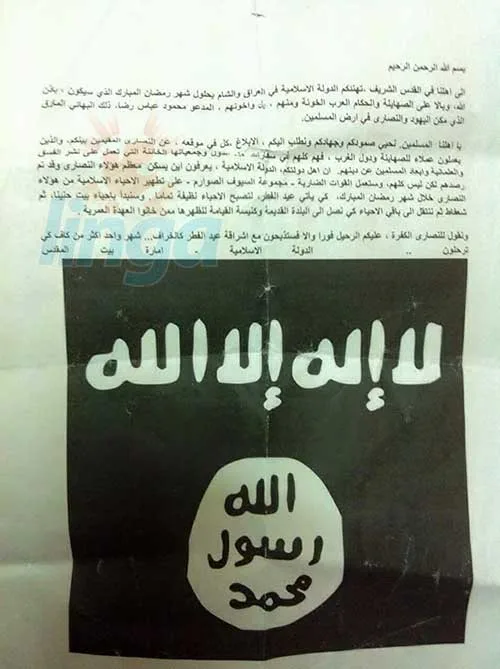 بسم الله الرحمن الرحيم
الى اهلنا في القدس الشريف ،تهنئكم الدولة الاسلامية في العراق والشام بحلول شهر رمضان المبارك الذي سيكون ، باذن
الله، وبالا على الصهاينة والحكام العرب الخونة ومنهم ، بل واخونهم ، المدعو محمود عباس رضا، ذلك البهائي المارق
الذي مكن اليهود والنصارى في ارض المسلمين.
يا اهلنا المسلمين، نحيي صمودكم وجهادكم ونطلب اليكم ، الابلاغ ،كل في موقعه ، عن النصارى المقيمين بينكم، والذين
يعملون عملاء للصهاينة ودول الغرب ، فهم كلهم في وجمعياتها الخائنة التي تعمل على نشر الفسق
والعلمانية وابعاد المسلمين عن دينهم. ان اهل دولتكم، الدولة الاسلامية ، يعرفون اين يسكن معظم هؤلاء النصارى وقد تم
رصدهم لكن ليس كلهم، وستعمل القوات الضاربة - مجموعة السيوف الصوارم - على تطهير الاحياء الاسلامية من هؤلاء
النصارى خلال شهر رمضان المبارك، كي يأتي عيد الفطر، لتصبح الاحياء نظيفة تماما، وسنبدأ باحياء بيت حنينا، ثم
شعفاط ثم ننتقل الى باقي الاحياء كي نصل الى البلدة القديمة وكنيسة القيامة لنطهرها ممن خانوا العهدة العمرية.
ونقول للنصارى الكفرة ، عليكم الرحيل فورا والا فستذبحون مع اشراقة عيد الفطر كالخراف... شهر واحد اكثر من كاف كي
ترحلون .. الدولة الاسلامية امارة بيت المقدس
linga
لا إله إلا الله
الله
رسول
محمد